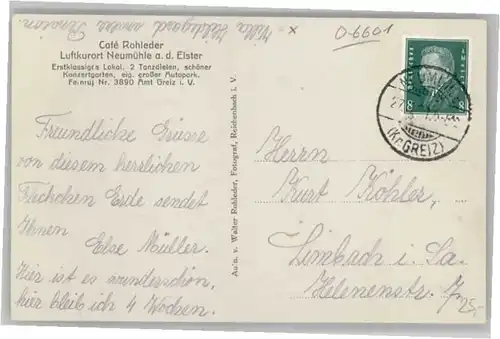 * Villa Hildegard unsere Pension
O-6601
Café Rohleder
Luftkurort Neumühle a. d. Elster
Erstklassiges Lokal. 2 Tanzdielen, schöner
Konzertgarten, eig. großer Autopark.
Fernruf Nr. 3890 Amt Greiz i. V.
8 8
(Kr. GREIZ)
Freundliche Grüsse
von diesem herrlichen
Fleckchen Erde sendet
Ihnen
Else Müller.
Hier ist es wunderschön,
hier bleib ich 4 Wochen.
Aufn. v. Walter Rohleder, Fotograf, Reichenbach i. V.
Herrn
Kurt Köhler,
Limbach i. Sa.
Helenenstr.